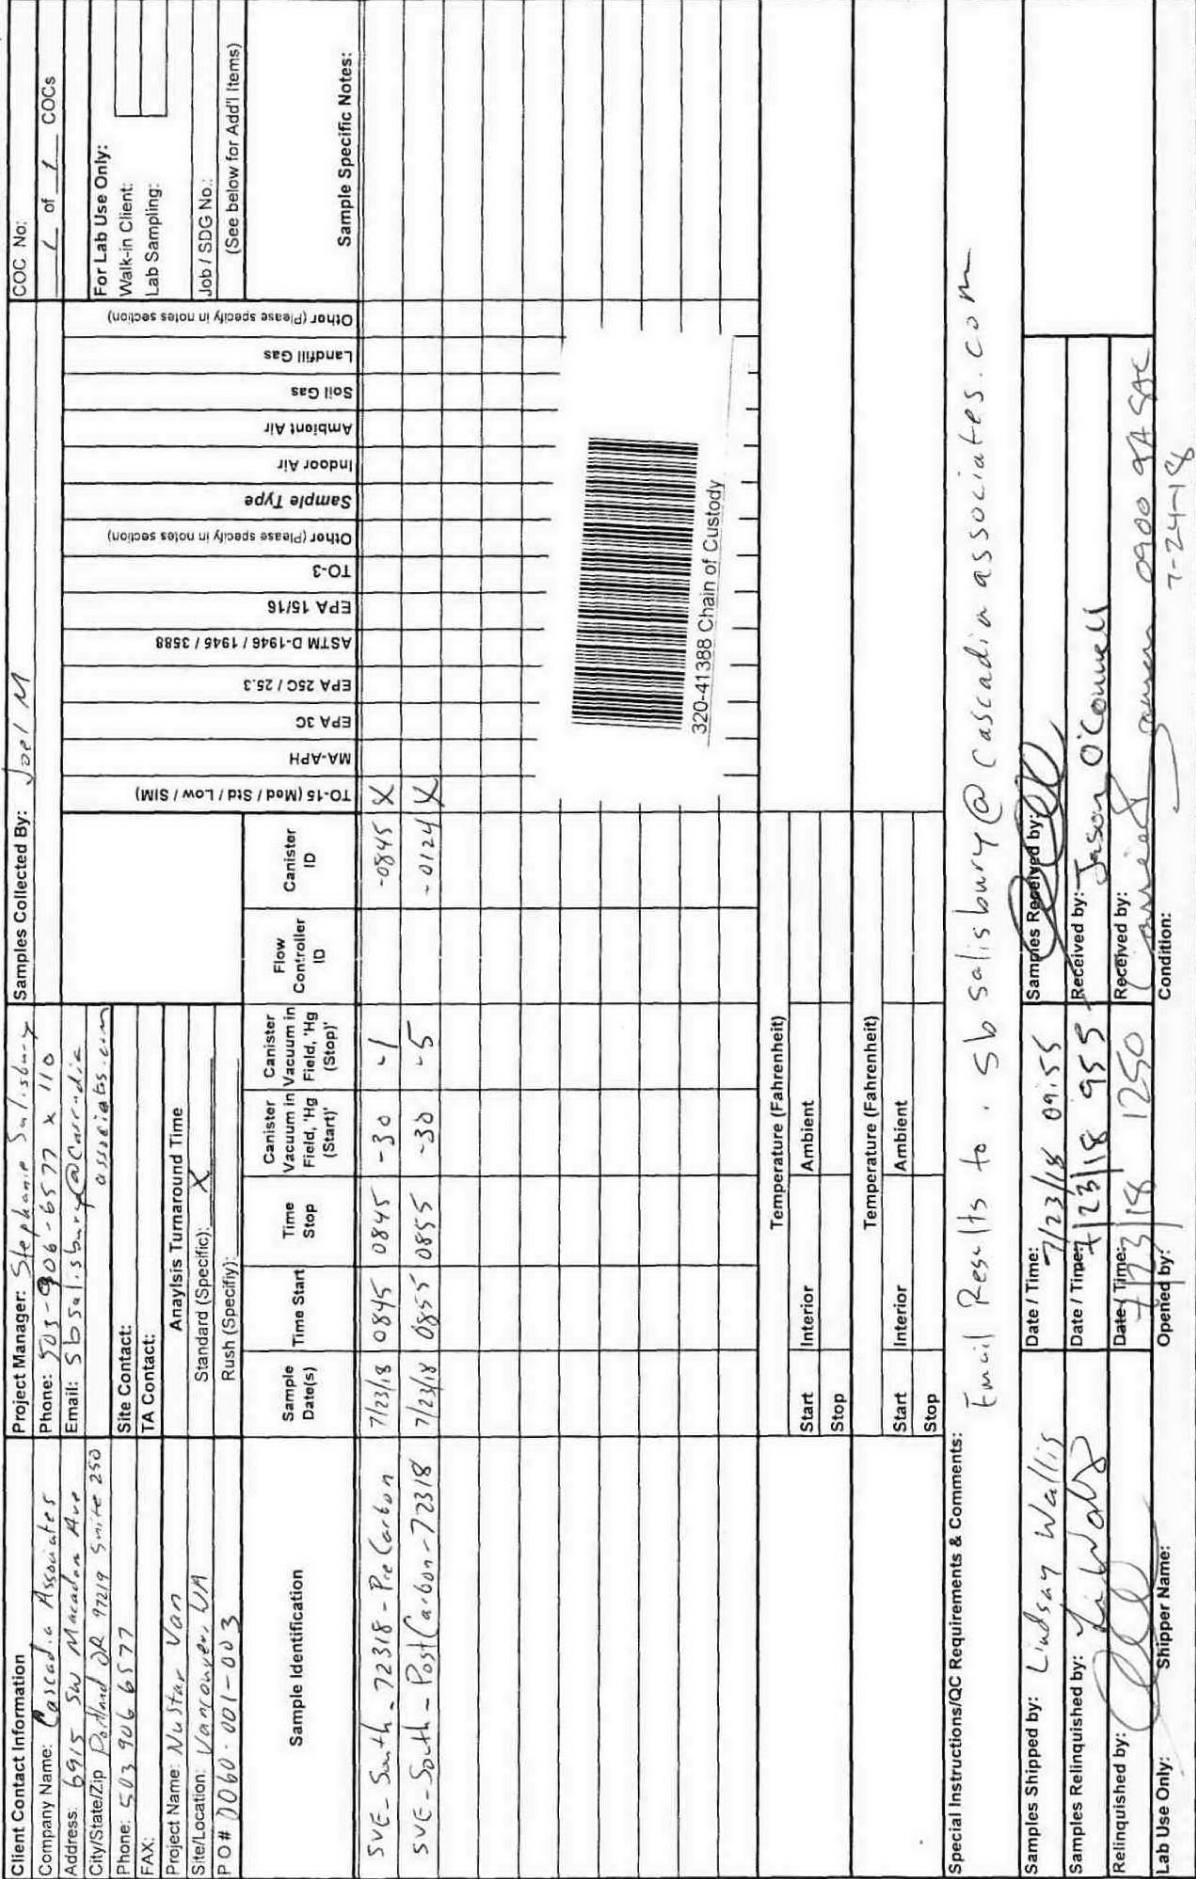 Client Contact Information
Company Name: Cascadia Associates
Address: 6915 SW Macadam Ave
City/State/Zip Portland OR 97219 Suite 250
Phone: 503 906 6577
FAX:
Project Name: NuStar Van
Site/Location: Vancouver, WA
PO# 0060-001-003
Project Manager: Stephanie Salisbury
Phone: 503-906-6577 x 110
Email: sbsalisbury@Cascadia
associates.com
Site Contact:
TA Contact:
Anaylsis Turnaround Time
Standard (Specific): X
Rush (Specifiy):
Samples Collected By: Joel M
COC No:
1 of 1 COCs
For Lab Use Only:
Walk-in Client:
Lab Sampling:
Job / SDG No.:
(See below for Add'l Items)
Sample Identification
Sample Date(s)
Time Start
Time Stop
Canister Vacuum in Field, 'Hg (Start)'
Canister Vacuum in Field, 'Hg (Stop)'
Flow Controller ID
Canister ID
TO-15 (Med / Std / Low / SIM)
MA-APH
EPA 3C
EPA 25C / 25.3
ASTM D-1946 / 1945 / 3588
EPA 15/16
TO-3
Other (Please specify in notes section)
Sample Type
Indoor Air
Ambient Air
Soil Gas
Landfill Gas
Other (Please specify in notes section)
Sample Specific Notes:
SVE-South-72318-PreCarbon 7/23/18 0845 0845 -30 -1 -0845 X
SVE-South-PostCarbon-72318 7/23/18 0855 0855 -30 -5 -0124 X
320-41388 Chain of Custody
Temperature (Fahrenheit)
Interior Ambient
Start
Stop
Temperature (Fahrenheit)
Interior Ambient
Start
Stop
Special Instructions/QC Requirements & Comments:
Email Results to: sbsalisbury@cascadiaassociates.com
Samples Shipped by: Lindsay Wallis
Date / Time: 7/23/18 09:55
Samples Received by:
Samples Relinquished by:
Date / Time: 7/23/18 955
Received by: Jason O'Connell
Relinquished by:
Date / Time: 7/23/18 1250
Received by: 0900 TA SAC
7-24-18
Lab Use Only: Shipper Name: Opened by: Condition: